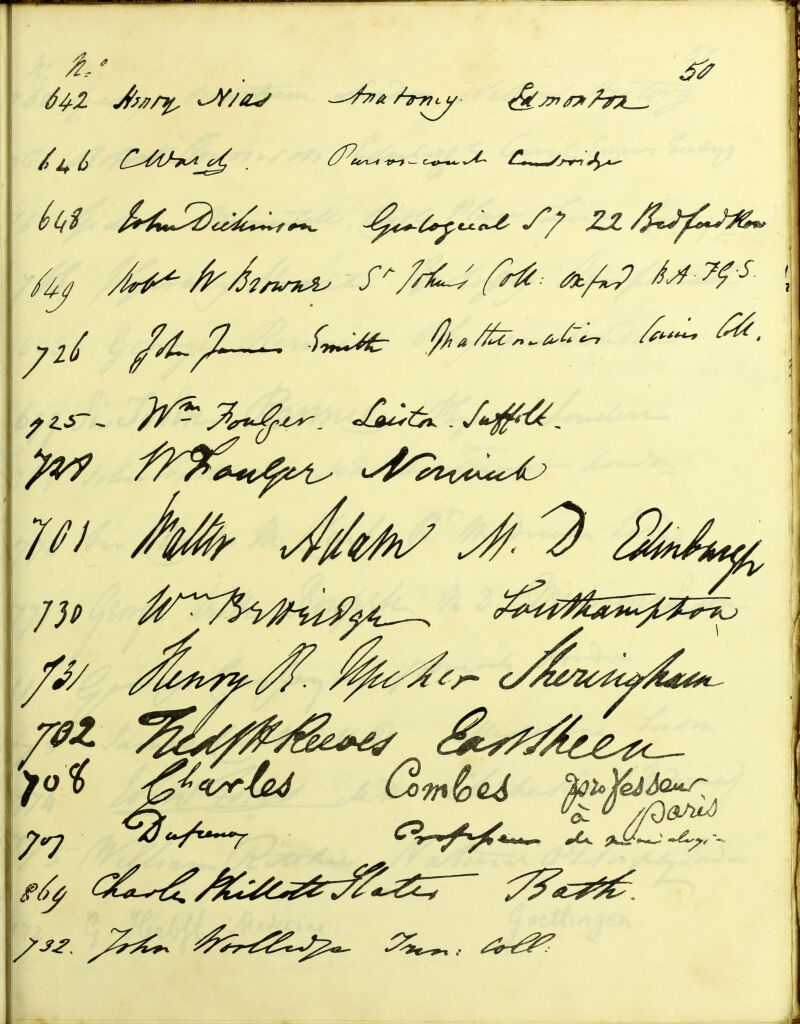 No. 50
642 Henry Nias Anatomy Edmonton
646 C Ward. Cambridge
648 John Dickinson Geological Sy 22 Bedford Row
649 Robt W Browne St John's Coll: Oxford B.A. F.G.S.
726 John James Smith Mathematics Caius Coll.
925 - Wm Foulger. Leiston. Suffolk.
728 W Foulger Norwich
701 Walter Adam M. D Edinburgh
730 Wm Betteridge Southampton
731 Henry R. Upcher Sheringham
702 Fredk H Reeves East Sheen
708 Charles Combes professeur
à paris
707 Dufrenoy Professeur de mineralogie
869 Charles Phillott Slater Bath.
732. John Woolledge Trin: Coll: